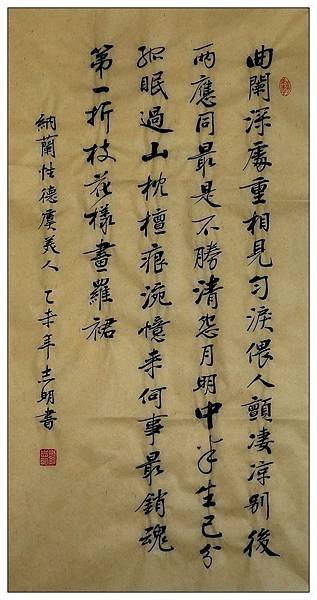 曲闌深處重相見匀淚偎人顫凄涼别後
兩應同最是不勝清怨月明中半生已分
孤眠過山枕檀痕涴憶來何事最銷魂
第一折枝花樣畫羅裙
納蘭性德虞美人乙未年志明書